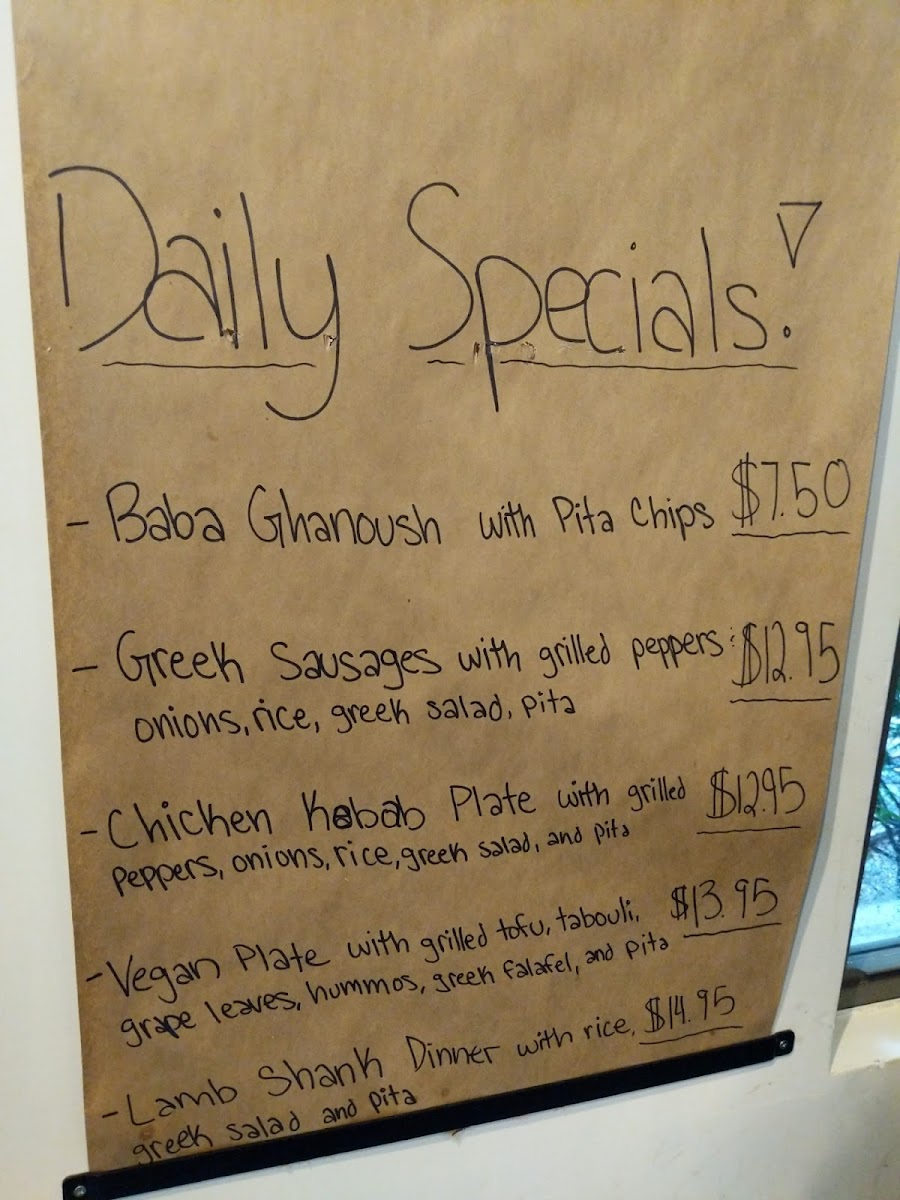 Daily Specials!
- Baba Ghanoush with Pita Chips $7.50
- Greek Sausages with grilled peppers: $12.95
onions, rice, greek salad, pita
- Chicken Kebab Plate with grilled $12.95
peppers, onions, rice, greek salad, and pita
- Vegan Plate with grilled tofu, tabouli, $13.95
grape leaves, hummos, greek falafel, and pita
- Lamb Shank Dinner with rice, $14.95
greek salad and pita